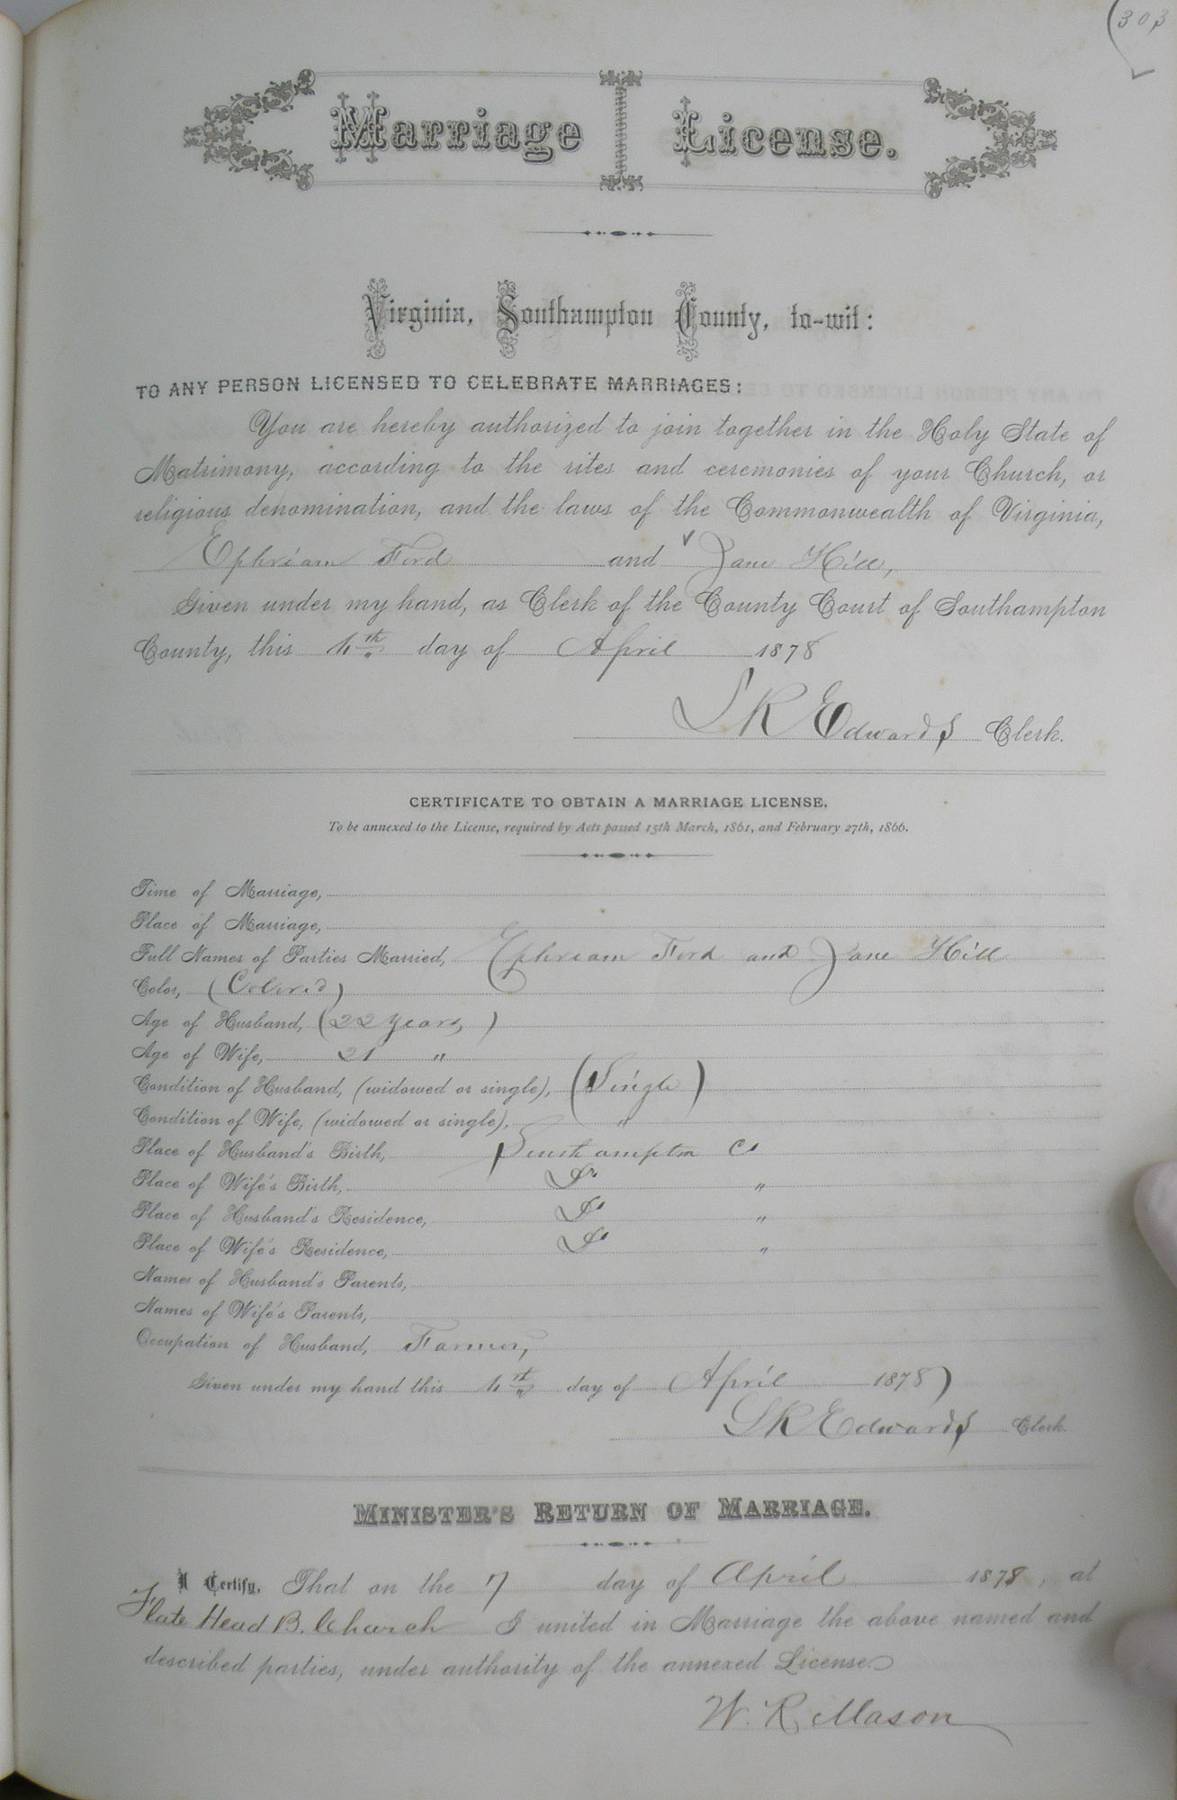 (303
Marriage License.
Virginia, Southampton County, to-wit:
TO ANY PERSON LICENSED TO CELEBRATE MARRIAGES:
You are hereby authorized to join together in the Holy State of
Matrimony, according to the rites and ceremonies of your Church, or
religious denomination, and the laws of the Commonwealth of Virginia,
Ephriam Ford and Jane Hill,
Given under my hand, as Clerk of the County Court of Southampton
County, this 4th day of April 1878
L R Edwards Clerk.
CERTIFICATE TO OBTAIN A MARRIAGE LICENSE,
To be annexed to the License, required by Acts passed 15th March, 1861, and February 27th, 1866.
Time of Marriage,
Place of Marriage,
Full Names of Parties Married, Ephriam Ford and Jane Hill
Color, (Colored)
Age of Husband, (22 years,)
Age of Wife, 21 "
Condition of Husband, (widowed or single), (Single)
Condition of Wife, (widowed or single), "
Place of Husband's Birth, Southampton Co
Place of Wife's Birth, Do "
Place of Husband's Residence, Do "
Place of Wife's Residence, Do "
Names of Husband's Parents,
Names of Wife's Parents,
Occupation of Husband, Farmer,
Given under my hand this 4th day of April 1878)
L R Edwards Clerk.
MINISTER'S RETURN OF MARRIAGE.
I Certify, That on the 7 day of April 1878, at
Flate Head B. Church I united in Marriage the above named and
described parties, under authority of the annexed License.
W. R. Mason